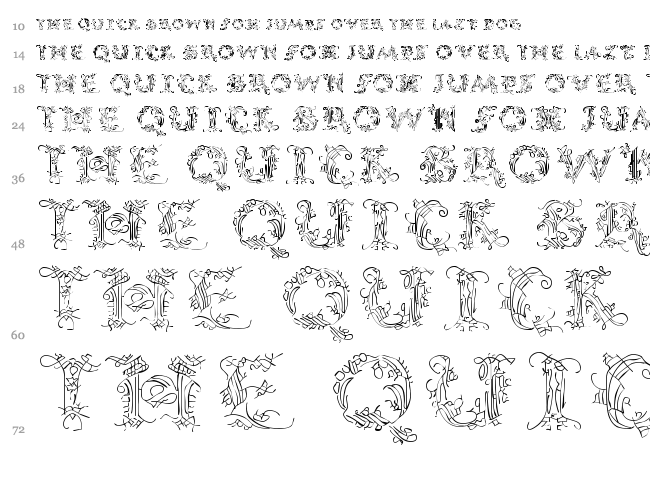 10 THE QUICK BROWN FOX JUMPS OVER THE LAZY DOG
14 THE QUICK BROWN FOX JUMPS OVER THE LAZY
18 THE QUICK BROWN FOX JUMPS OVER
24 THE QUICK BROWN FOX JUM
36 THE QUICK BROWN
48 THE QUICK BR
60 THE QUICK
72 THE QUIC